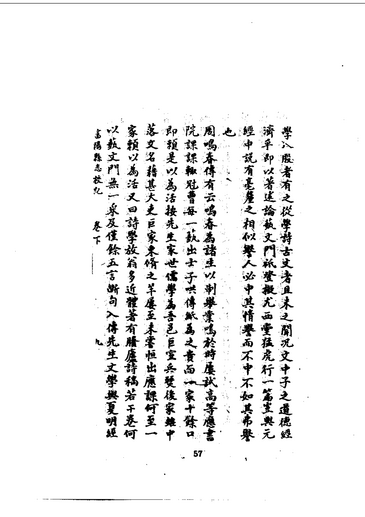 學八股者有之從學詩古文者且未之聞況文中子之道德經
濟乎即以著述論藝文門祇登擬尤西堂猛虎行一篇豈與元
經中說有毫釐之相似譽人必中其情譽而不中不如其弗譽
也
周鳴春傳有云鳴春為諸生以制舉業鳴於時屢試高等應書
院課課輒冠曹每一藝出士子哄傳紙為之貴而一家十餘口
即賴是以為活按先生家世儒學為吾邑巨室兵燹後家雖中
落文名藉甚大吏巨家束脩之羊屢至未嘗恒出應課何至一
家賴以為活又曰詩學放翁多近體著有臞廬詩稿若干卷何
以藝文門無一采及僅餘五言斷句入傳先生文學與夏明經
縣志校記 卷下 九
57